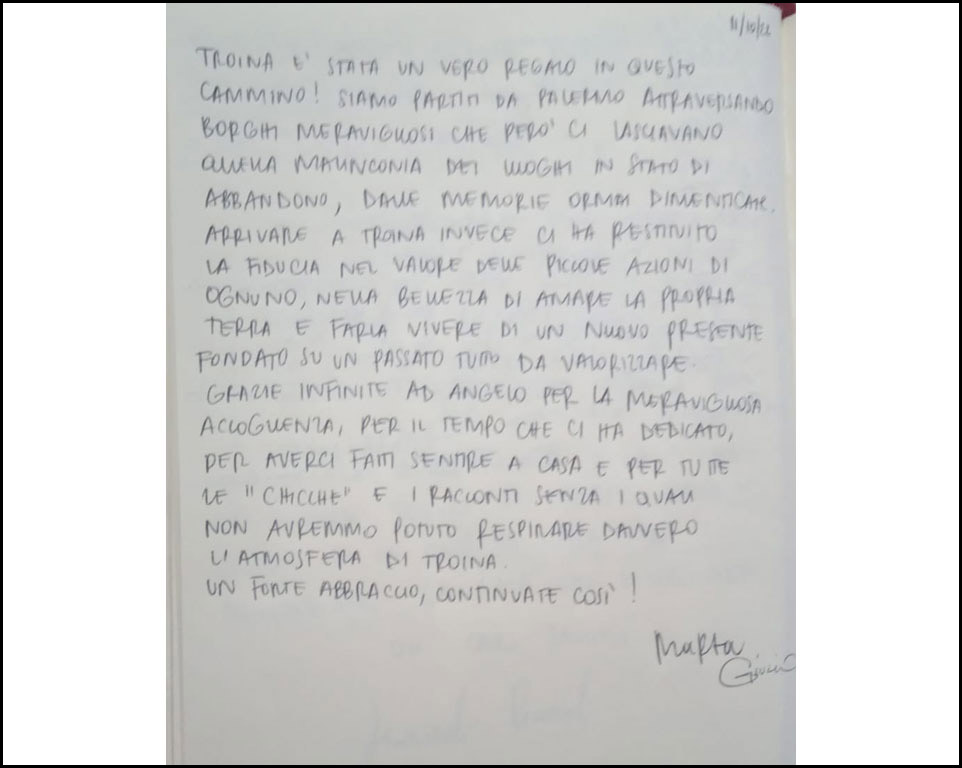 11/10/22
TROINA E' STATA UN VERO REGALO IN QUESTO
CAMMINO! SIAMO PARTITI DA PALERMO ATTRAVERSANDO
BORGHI MERAVIGLIOSI CHE PERO' CI LASCIAVANO
QUELLA MALINCONIA DEI LUOGHI IN STATO DI
ABBANDONO, DALLE MEMORIE ORMAI DIMENTICATE.
ARRIVARE A TROINA INVECE CI HA RESTITUITO
LA FIDUCIA NEL VALORE DELLE PICCOLE AZIONI DI
OGNUNO, NELLA BELLEZZA DI AMARE LA PROPRIA
TERRA E FARLA VIVERE DI UN NUOVO PRESENTE
FONDATO SU UN PASSATO TUTTO DA VALORIZZARE.
GRAZIE INFINITE AD ANGELO PER LA MERAVIGLIOSA
ACCOGLIENZA, PER IL TEMPO CHE CI HA DEDICATO,
PER AVERCI FATTI SENTIRE A CASA E PER TUTTE
LE "CHICCHE" E I RACCONTI SENZA I QUALI
NON AVREMMO POTUTO RESPIRARE DAVVERO
L'ATMOSFERA DI TROINA.
UN FORTE ABBRACCIO, CONTINUATE COSÌ!
Marta